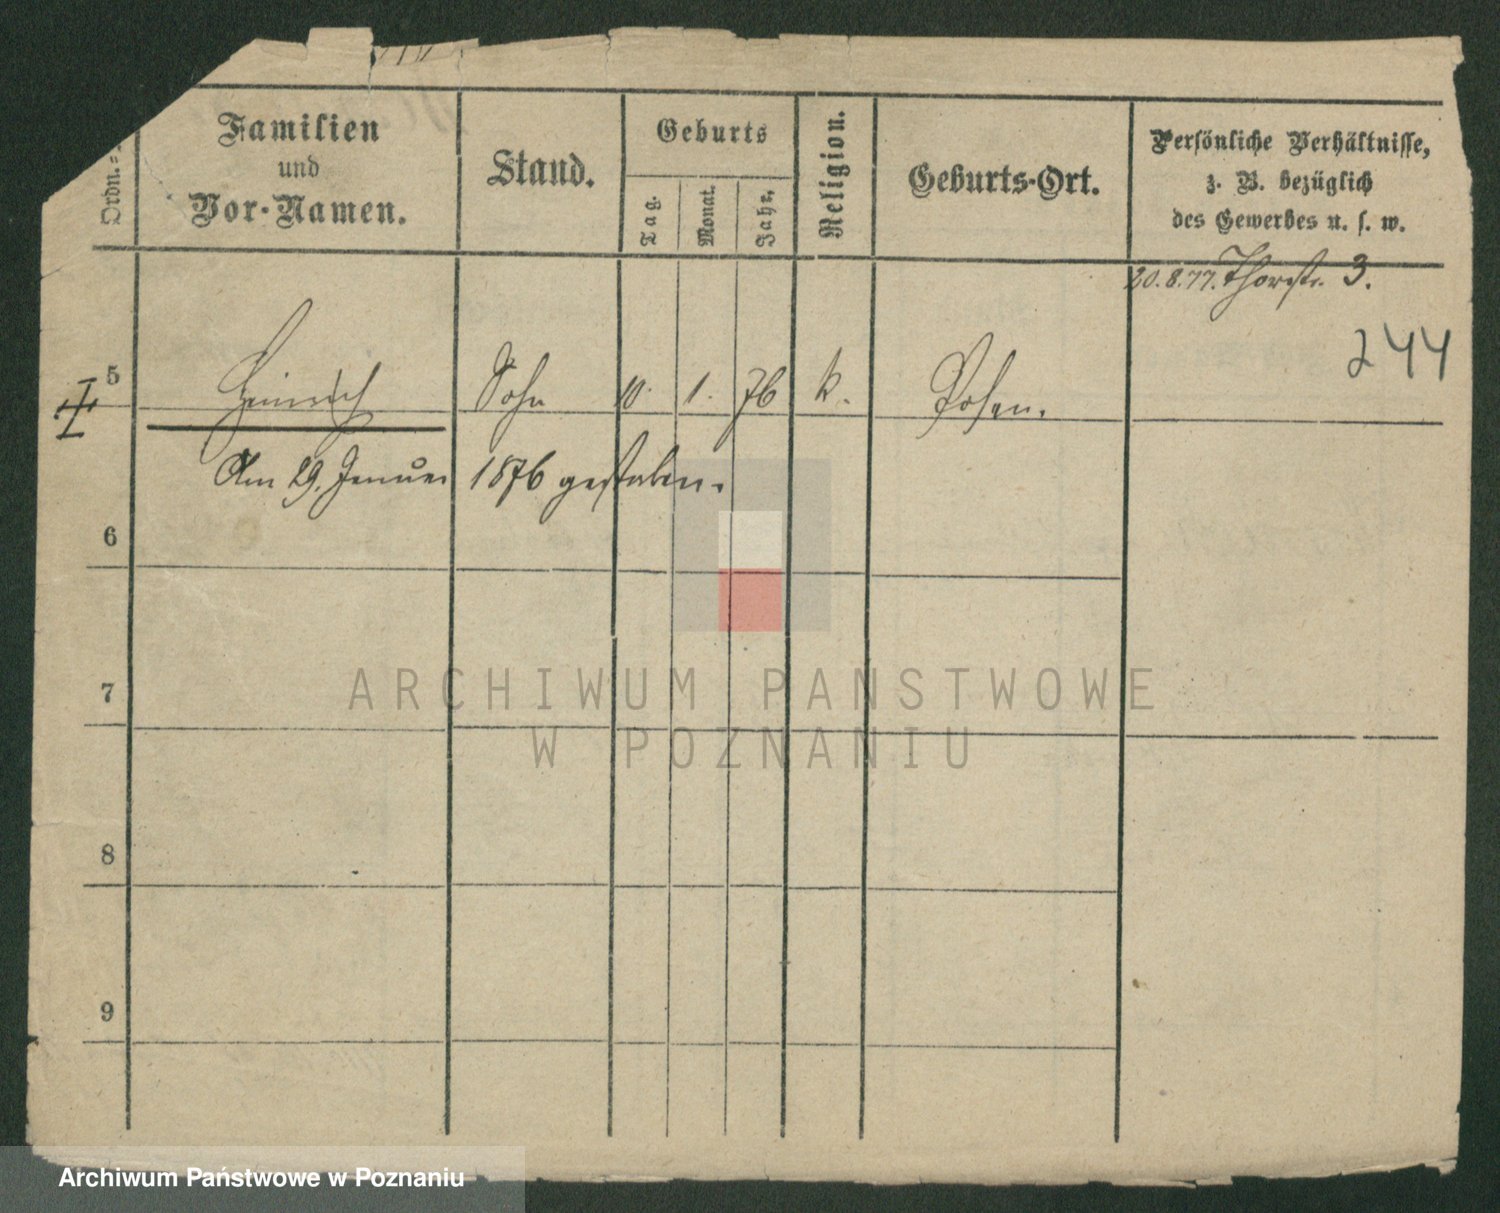 Ordn.=
Familien
und
Vor-Namen.
Stand.
Geburts
Tag.
Monat.
Jahr.
Religion.
Geburts-Ort.
Persönliche Verhältnisse,
z. B. bezüglich
des Gewerbes u. s. w.
20.8.77. Thorstr. 3.
244
5 Heinrich Sohn 10. 1. 76 k. Posen.
I
Am 29. Januar 1876 gestorben.
6
7
ARCHIWUM PAŃSTWOWE
W POZNANIU
8
9
Archiwum Państwowe w Poznaniu